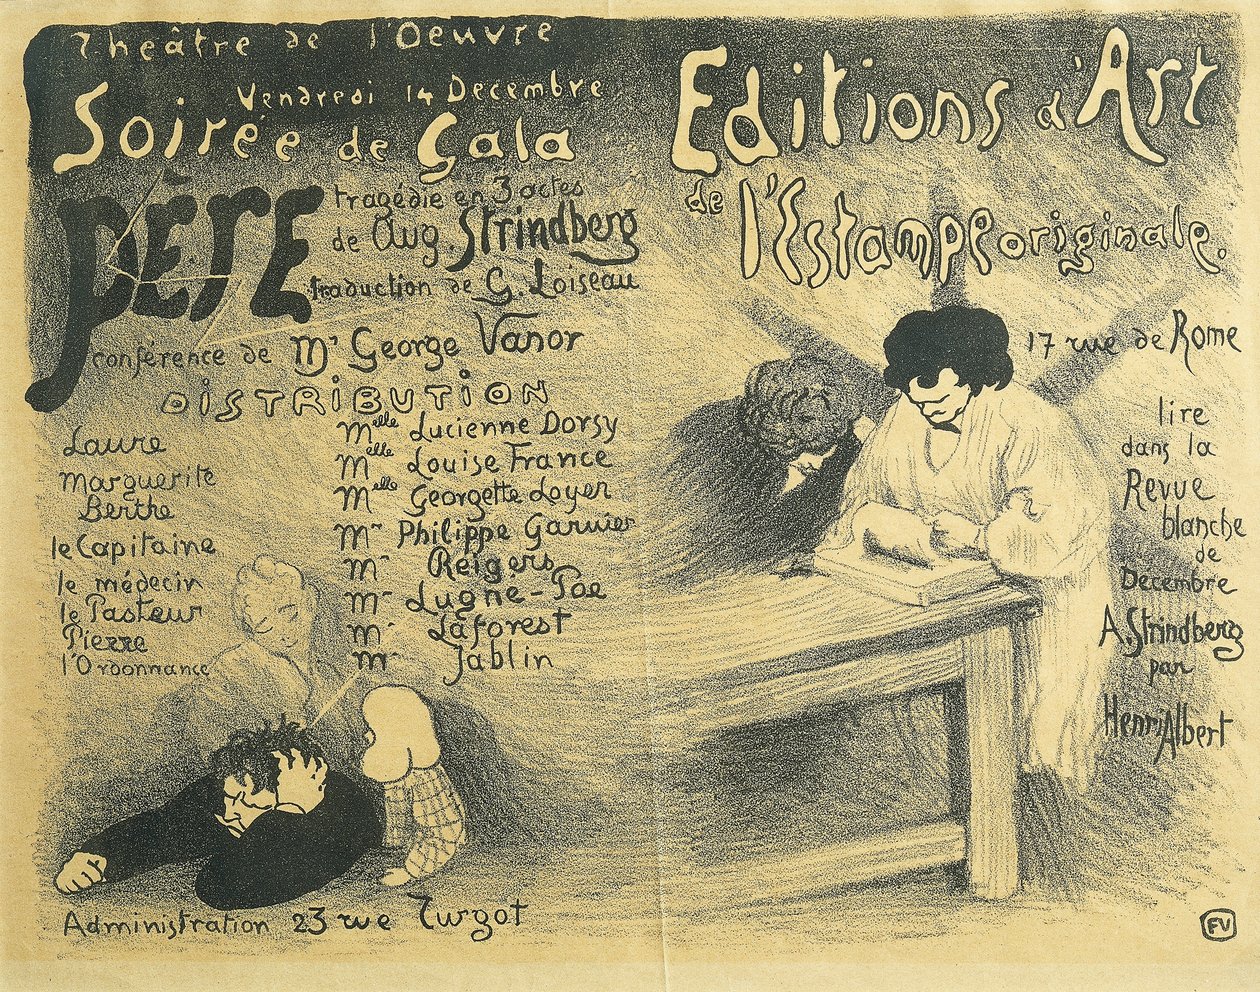 Théâtre de l'Oeuvre
Vendredi 14 Decembre
Soirée de Gala
PÈrE
tragédie en 3 actes
de Aug. Strindberg
traduction de G. Loiseau
conférence de Mr George Vanor
DiSTRiBUTiON
Laure Melle Lucienne Dorsy
Marguerite Melle Louise France
Berthe Melle Georgette Loyer
le Capitaine Mr Philippe Garnier
le médecin Mr Reigers
le Pasteur Mr Lugné-Poe
Pierre Mr Laforest
l'Ordonnance Mr Jablin
Administration 23 rue Turgot
Editions d'Art
de l'Estampe originale.
17 rue de Rome
lire
dans la
Revue
blanche
de
Décembre
A. Strindberg
par
Henri Albert
FV